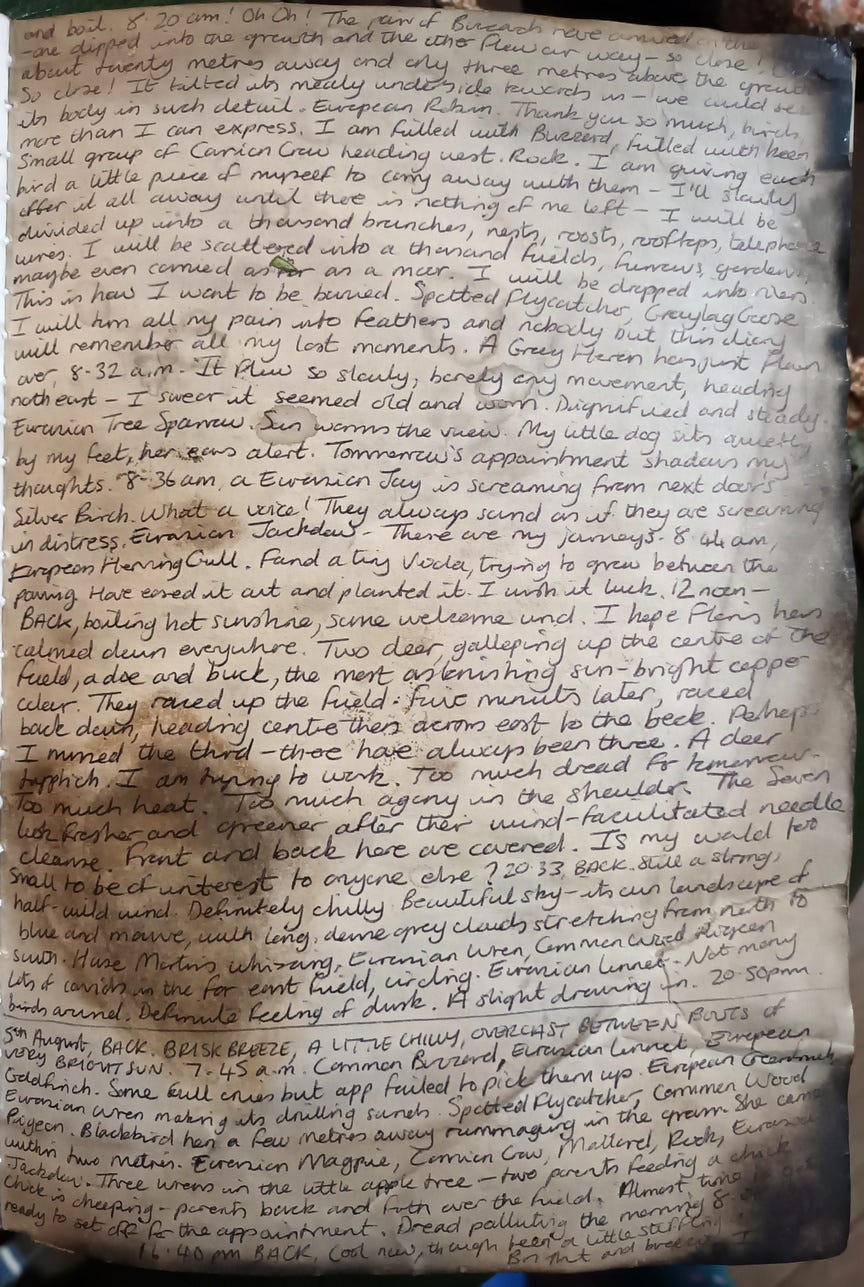 and boil. 8.20 am! Oh Oh! The pair of Buzzards have arrived on the
-one dipped into the growth and the other flew our way - so close!
about twenty metres away and only three metres above the ground
So close! It tilted its mealy underside towards us - we could see
its body in such detail. European Robin. Thank you so much, birds,
more than I can express. I am filled with Buzzard, filled with keen
Small group of Carrion Crow heading west. Rook. I am giving each
bird a little piece of myself to carry away with them - I'll slowly
offer it all away until there is nothing of me left - I will be
divided up into a thousand branches, nests, roosts, rooftops, telephone
wires. I will be scattered into a thousand fields, furrows, gardens,
maybe even carried as far as a moor. I will be dropped into rivers.
This is how I want to be buried. Spotted Flycatcher, Graylag Goose
I will turn all my pain into feathers and nobody but this diary
will remember all my last moments. A Grey Heron has just flown
over, 8.32 a.m. It flew so slowly, barely any movement, heading
north east - I swear it seemed old and worn. Dignified and steady.
Eurasian Tree Sparrow. Sun warms the view. My little dog sits quietly
by my feet, her ears alert. Tommorrow's appointment shadows my
thoughts. 8.36 am, a Eurasian Jay is screaming from next door's
Silver Birch. What a voice! They always sound as if they are screaming
in distress. Eurasian Jackdaw - These are my journeys. 8.44 am,
European Herring Gull. Found a tiny Viola, trying to grow between the
paving. Have eased it out and planted it. I wish it luck. 12 noon -
BACK, boiling hot sunshine, some welcome wind. I hope Floris has
calmed down everywhere. Two deer, galloping up the centre of the
field, a doe and buck, the most astonishing sun-bright copper
colour. They raced up the field. Five minutes later, raced
back down, heading centre then across east to the beck. Perhaps
I missed the third - there have always been three. A deer
triptich. I am trying to work. Too much dread for tomorrow.
Too much heat. Too much agony in the shoulder. The Seven
look fresher and greener after their wind-facilitated needle
cleanse. Front and back here are covered. Is my world too
small to be of interest to anyone else? 20.33, BACK. Still a strong,
half-wild wind. Definitely chilly. Beautiful sky - its own landscape of
blue and mauve, with long, dense grey clouds stretching from north to
south. House Martins whizzing, Eurasian Wren, Common Wood Pigeon
Lots of corvids in the far east field, circling. Eurasian Linnet. Not many
birds around. Definite feeling of dusk. A slight drawing in. 20.50pm.
5th August, BACK. BRISK BREEZE, A LITTLE CHILLY, OVERCAST BETWEEN BOUTS OF
VERY BRIGHT SUN. 7.45 a.m. Common Buzzard, Eurasian Linnet, European
Goldfinch. Some gull cries but app failed to pick them up. European Greenfinch
Eurasian Wren making its drilling sounds. Spotted Flycatcher, Common Wood
Pigeon. Blackbird hen a few metres away rummaging in the grass. She came
within two metres. Eurasian Magpie, Carrion Crow, Mallard, Rook, Eurasian
Jackdaw. Three wrens in the little apple tree - two parents feeding a chick
Chick is cheeping - parents back and forth over the field. Almost time to get
ready to set off for the appointment. Dread polluting the morning
16.40 pm BACK, Cool now, though been a little stuffing
Bright and breezy. I